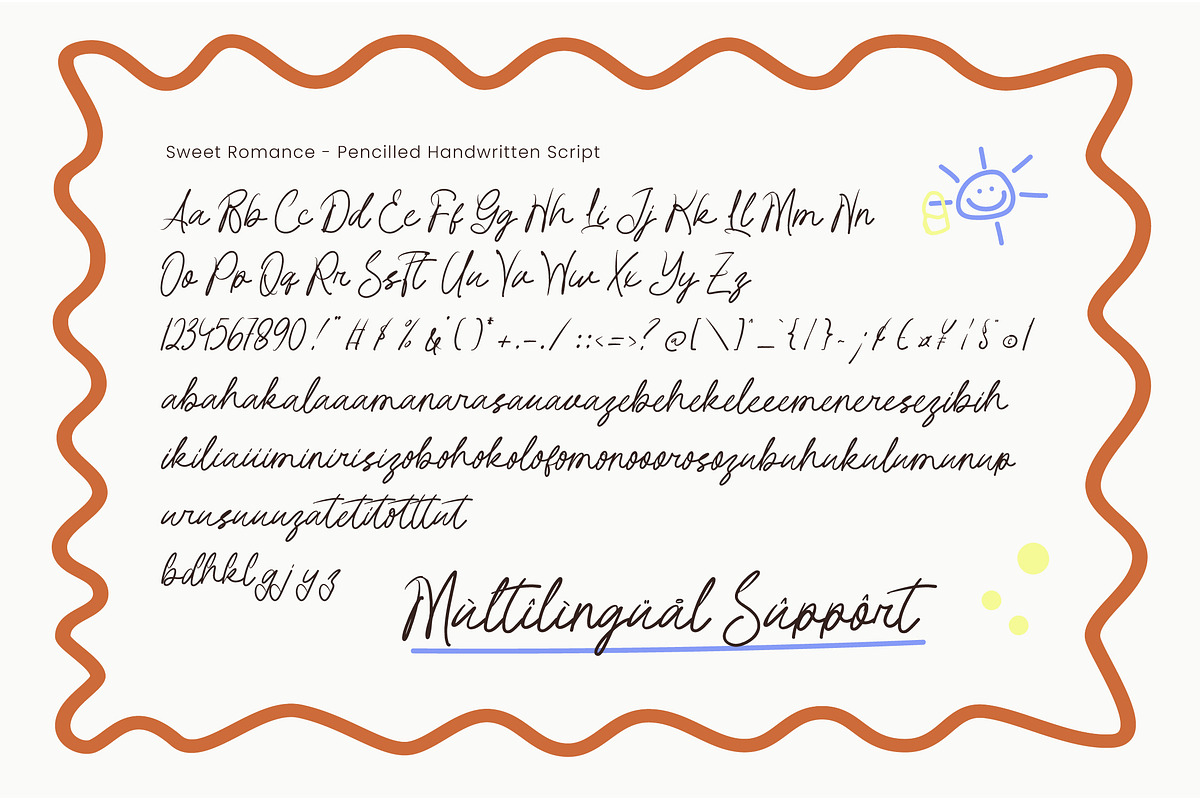 Sweet Romance - Pencilled Handwritten Script
Aa Bb Cc Dd Ee Ff Gg Hh Ii Jj Kk Ll Mm Nn
Oo Pp Qq Rr Ss Tt Uu Vv Ww Xx Yy Zz
1234567890!" # $ % & ' ( ) * + , - . / : ; < = > ? @ [ \ ] ^ _ ` { | } ~ ¡ ¢ £ ¤ ¥ ¦ § ¨ ©
abahakalaaamanarasauavazebehekeleeemeneresezibih
ikiliaiiiminirisizobohokolofomonooorosozubuhukulumunup
urusuuuzatetitotttut
bdhklgjyz
Mùltîlìngüål Sûppôrt